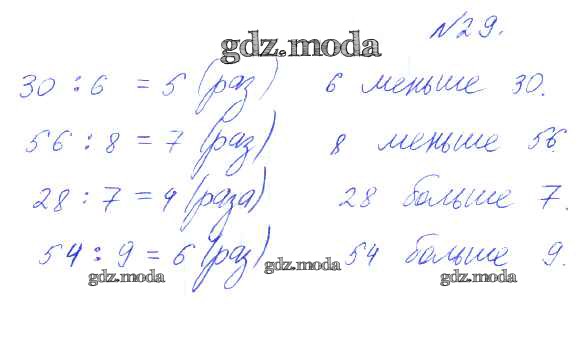 №29.
gdz.moda
30 : 6 = 5 (раз) 6 меньше 30.
56 : 8 = 7 (раз) 8 меньше 56.
28 : 7 = 4 (раза) 28 больше 7.
54 : 9 = 6 (раз) 54 больше 9.
gdz.moda gdz.moda gdz.moda